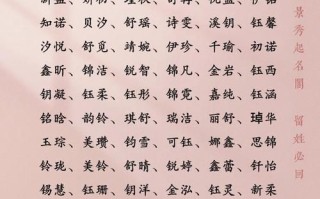 知诺、贝汐、舒瑶、诗雯、溪钥、钰馨
汐悦、舒觅、靖婉、伊珍、千瑜、初诺
鑫昕、锦洁、锐智、锦凡、金岩、钰西
钥凝、钰柔、钰涵、锦霓、嘉纯、钰涵
铭晗、韵铃、琪舒、瑞洁、丽舒、琸华
玉琮、美瓒、钧雪、可钰、娜鑫、思锦
铃珑、美铃、舒锐、锐婷、鑫蕾、钎怡
锡慧、钰珊、钥洋、金泓、钰灵、新柔
景秀起名阁 留姓必回